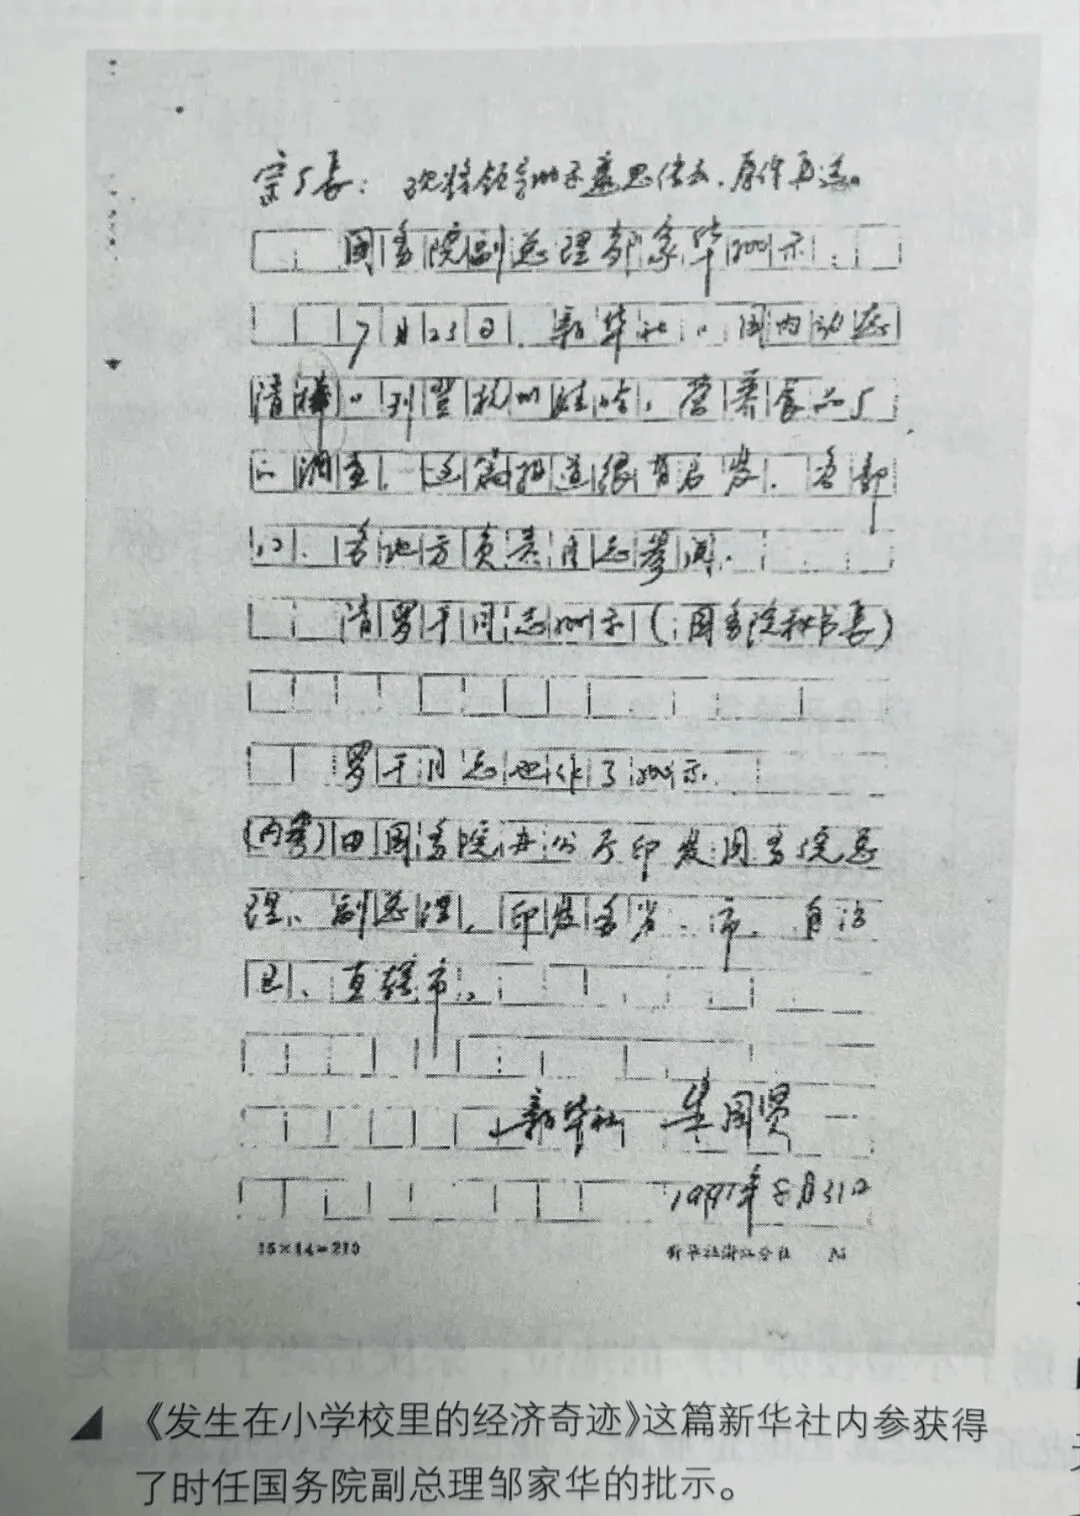 宗厂长：现将领导批示意思传去，原件再送。
国务院副总理邹家华批示：
7月25日，新华社《国内动态
清样》刊登杭州娃哈哈营养食品厂
的调查，这篇报道很有启发，各部
门、各地方负责同志参阅。
请罗干同志批示（国务院秘书长）
罗干同志也作了批示。
（内参）由国务院办公厅印发国务院总
理、副总理，印发各省、市、自治
区、直辖市。
新华社 国贤
1991年8月31日
15×14=210
新华社浙江分社
《发生在小学校里的经济奇迹》这篇新华社内参获得
了时任国务院副总理邹家华的批示。